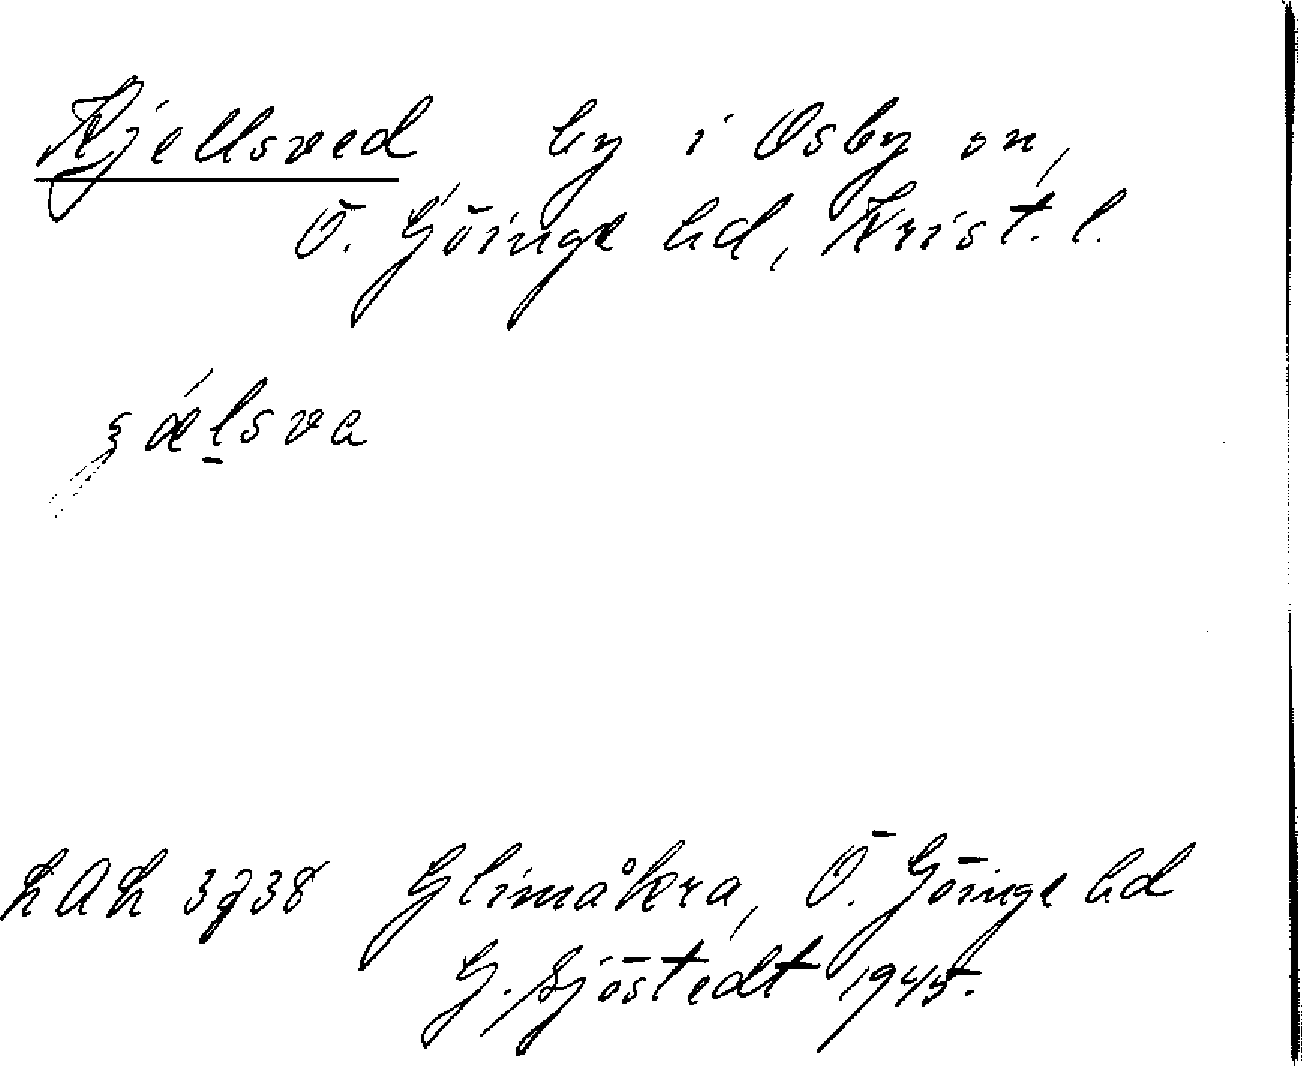 Kjellsved by i Osby sn,
Ö. Göinge hd, Krist. l.
ʒǽlsva
LAL 3738 Glimåkra, Ö. Göinge hd
G. Sjöstedt 1945.